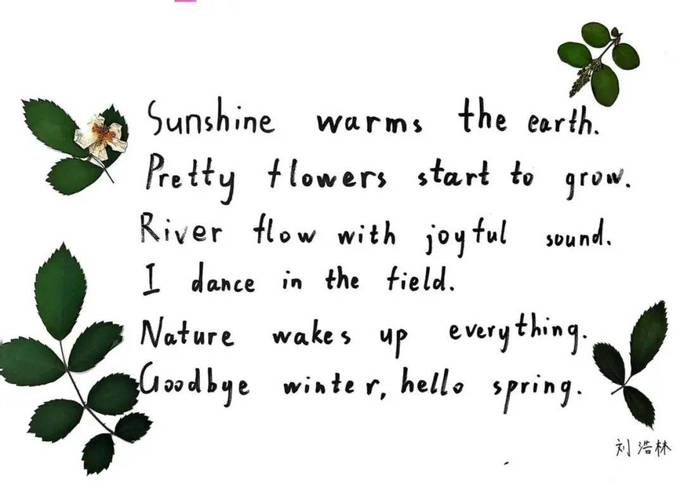 Sunshine warms the earth.
Pretty flowers start to grow.
River flow with joyful sound.
I dance in the field.
Nature wakes up everything.
Goodbye winter, hello spring.
刘浩林